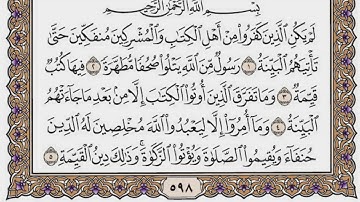 بِسْمِ ٱللَّهِ ٱلرَّحْمَٰنِ ٱلرَّحِيمِ
لَمْ يَكُنِ ٱلَّذِينَ كَفَرُوا۟ مِنْ أَهْلِ ٱلْكِتَٰبِ وَٱلْمُشْرِكِينَ مُنفَكِّينَ حَتَّىٰ
تَأْتِيَهُمُ ٱلْبَيِّنَةُ ١ رَسُولٌ مِّنَ ٱللَّهِ يَتْلُوا۟ صُحُفًا مُّطَهَّرَةً ٢ فِيهَا كُتُبٌ
قَيِّمَةٌ ٣ وَمَا تَفَرَّقَ ٱلَّذِينَ أُوتُوا۟ ٱلْكِتَٰبَ إِلَّا مِنۢ بَعْدِ مَا جَآءَتْهُمُ
ٱلْبَيِّنَةُ ٤ وَمَآ أُمِرُوٓا۟ إِلَّا لِيَعْبُدُوا۟ ٱللَّهَ مُخْلِصِينَ لَهُ ٱلدِّينَ
حُنَفَآءَ وَيُقِيمُوا۟ ٱلصَّلَوٰةَ وَيُؤْتُوا۟ ٱلزَّكَوٰةَ ۚ وَذَٰلِكَ دِينُ ٱلْقَيِّمَةِ ٥
٥٩٨